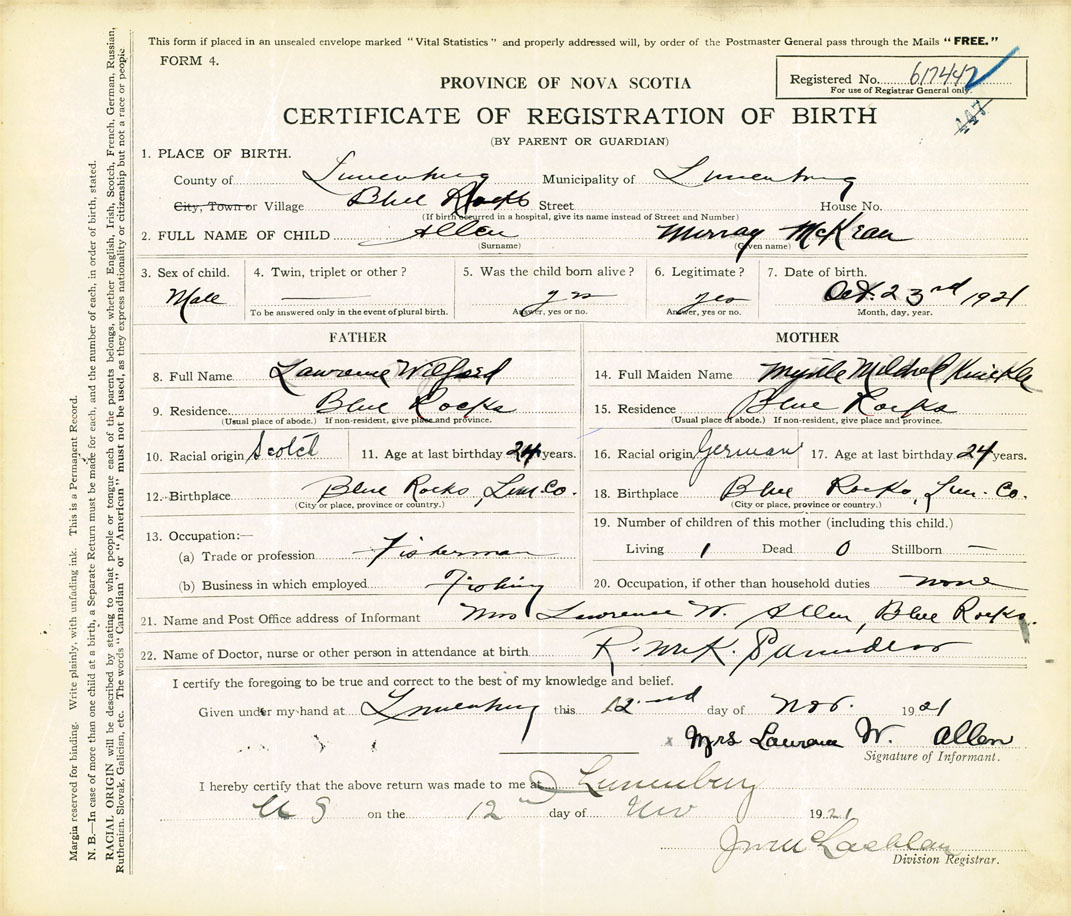 This form if placed in an unsealed envelope marked "Vital Statistics" and properly addressed will, by order of the Postmaster General pass through the Mails "FREE."
FORM 4.
Registered No. 617447
For use of Registrar General only.
447
PROVINCE OF NOVA SCOTIA
CERTIFICATE OF REGISTRATION OF BIRTH
(BY PARENT OR GUARDIAN)
1. PLACE OF BIRTH.
County of Lunenburg Municipality of Lunenburg
City, Town or Village Blue Rocks Street House No.
(If birth occurred in a hospital, give its name instead of Street and Number)
2. FULL NAME OF CHILD Allen Murray McKean
(Surname) (Given name)
3. Sex of child. 4. Twin, triplet or other? 5. Was the child born alive? 6. Legitimate? 7. Date of birth.
Male yes yes Oct. 23rd 1921
To be answered only in the event of plural birth. Answer, yes or no. Answer, yes or no. Month, day, year.
FATHER
8. Full Name Lawrence Wilfred
9. Residence Blue Rocks
(Usual place of abode.) If non-resident, give place and province.
10. Racial origin Scotch 11. Age at last birthday 24 years.
12. Birthplace Blue Rocks, Lun Co.
(City or place, province or country.)
13. Occupation:—
(a) Trade or profession Fisherman
(b) Business in which employed Fishing
MOTHER
14. Full Maiden Name Myrtle Mildred Knickle
15. Residence Blue Rocks
(Usual place of abode.) If non-resident, give place and province.
16. Racial origin German 17. Age at last birthday 24 years.
18. Birthplace Blue Rocks, Lun. Co.
(City or place, province or country.)
19. Number of children of this mother (including this child.)
Living 1 Dead 0 Stillborn —
20. Occupation, if other than household duties none
21. Name and Post Office address of Informant Mrs Lawrence W. Allen, Blue Rocks.
22. Name of Doctor, nurse or other person in attendance at birth. R. McK. Saunders
I certify the foregoing to be true and correct to the best of my knowledge and belief.
Given under my hand at Lunenburg this 12nd day of Nov. 1921
x Mrs Lawrence W. Allen
Signature of Informant.
I hereby certify that the above return was made to me at Lunenburg
N S on the 12 day of Nov 1921
Division Registrar.
Margin reserved for binding. Write plainly, with unfading ink. This is a Permanent Record.
N. B.—In case of more than one child at a birth, a Separate Return must be made for each, and the number of each, in order of birth, stated.
RACIAL ORIGIN will be described by stating to what people or tongue each of the parents belongs, whether English, Irish, Scotch, French, German, Russian,
Ruthenian, Slovak, Galician, etc. The words "Canadian" or "American" must not be used, as they express nationality or citizenship but not a race or people